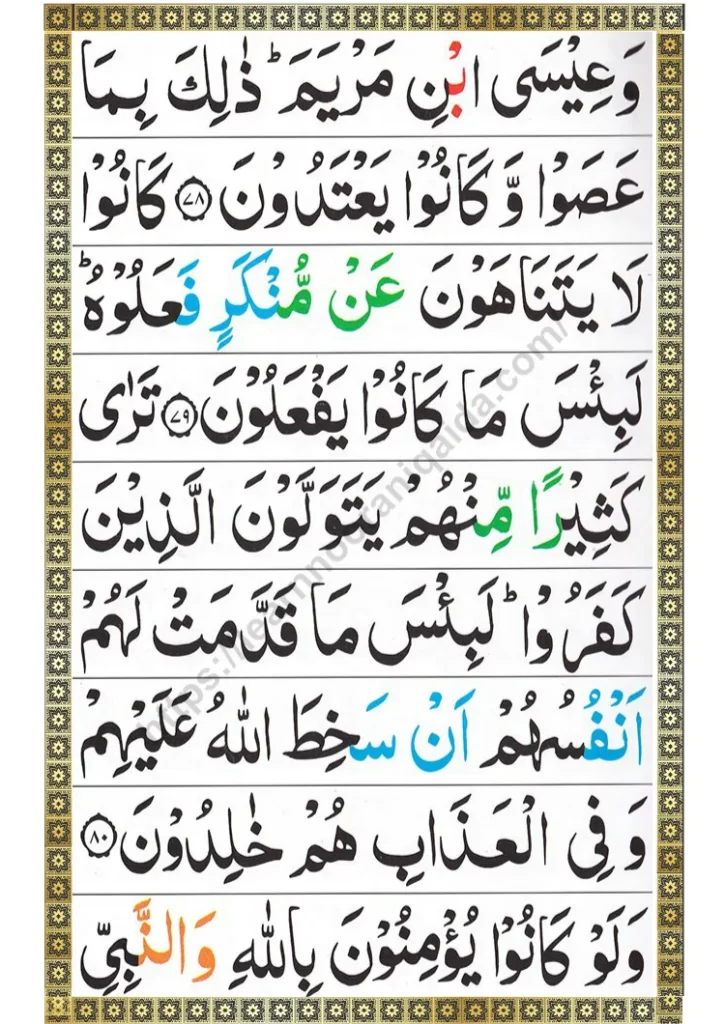 وَعِيْسَى ابْنِ مَرْيَمَ ؕ ذٰلِكَ بِمَا
عَصَوْا وَّ كَانُوْا يَعْتَدُوْنَ ﴿٧٨﴾ كَانُوْا
لَا يَتَنَاهَوْنَ عَنْ مُّنْكَرٍ فَعَلُوْهُ ؕ
لَبِئْسَ مَا كَانُوْا يَفْعَلُوْنَ ﴿٧٩﴾ تَرٰى
كَثِيْرًا مِّنْهُمْ يَتَوَلَّوْنَ الَّذِيْنَ
كَفَرُوْا ؕ لَبِئْسَ مَا قَدَّمَتْ لَهُمْ
اَنْفُسُهُمْ اَنْ سَخِطَ اللّٰهُ عَلَيْهِمْ
وَ فِى الْعَذَابِ هُمْ خٰلِدُوْنَ ﴿٨٠﴾
وَلَوْ كَانُوْا يُؤْمِنُوْنَ بِاللّٰهِ وَالنَّبِىِّ
https://learnnooraniqaida.com/